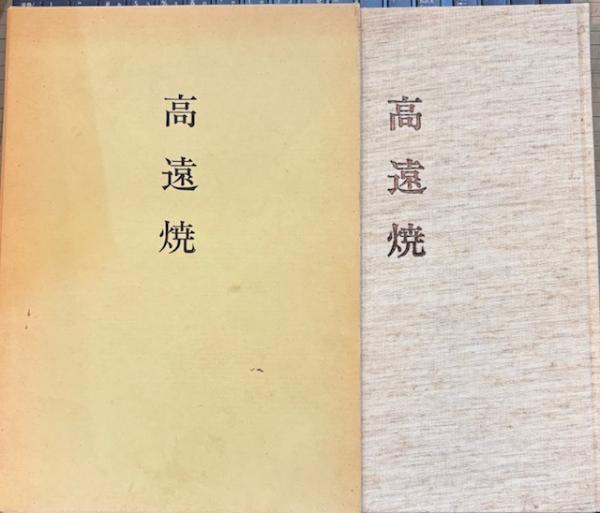 高遠焼
高遠焼